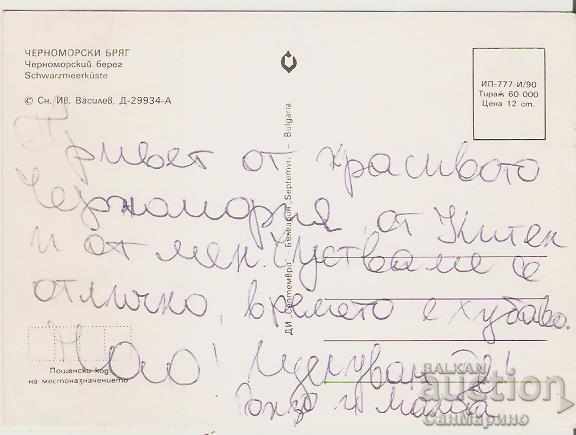 ЧЕРНОМОРСКИ БРЯГ
Черноморский берег
Schwarzmeerküste
© Сн. Ив. Василев. Д-29934-А
ИП-777-И/90
Тираж 60 000
Цена 12 ст.
ДИ „Септември“ Болгария Septemvri - Bulgaria
Привет от красивото
Черноморие, от Китен
и от мен. Чустваме се
отлично, времето е хубаво.
Чао! Целувам те!
и мама
Пощенски код
на местоназначението
BALKAN
auction
Санмарино